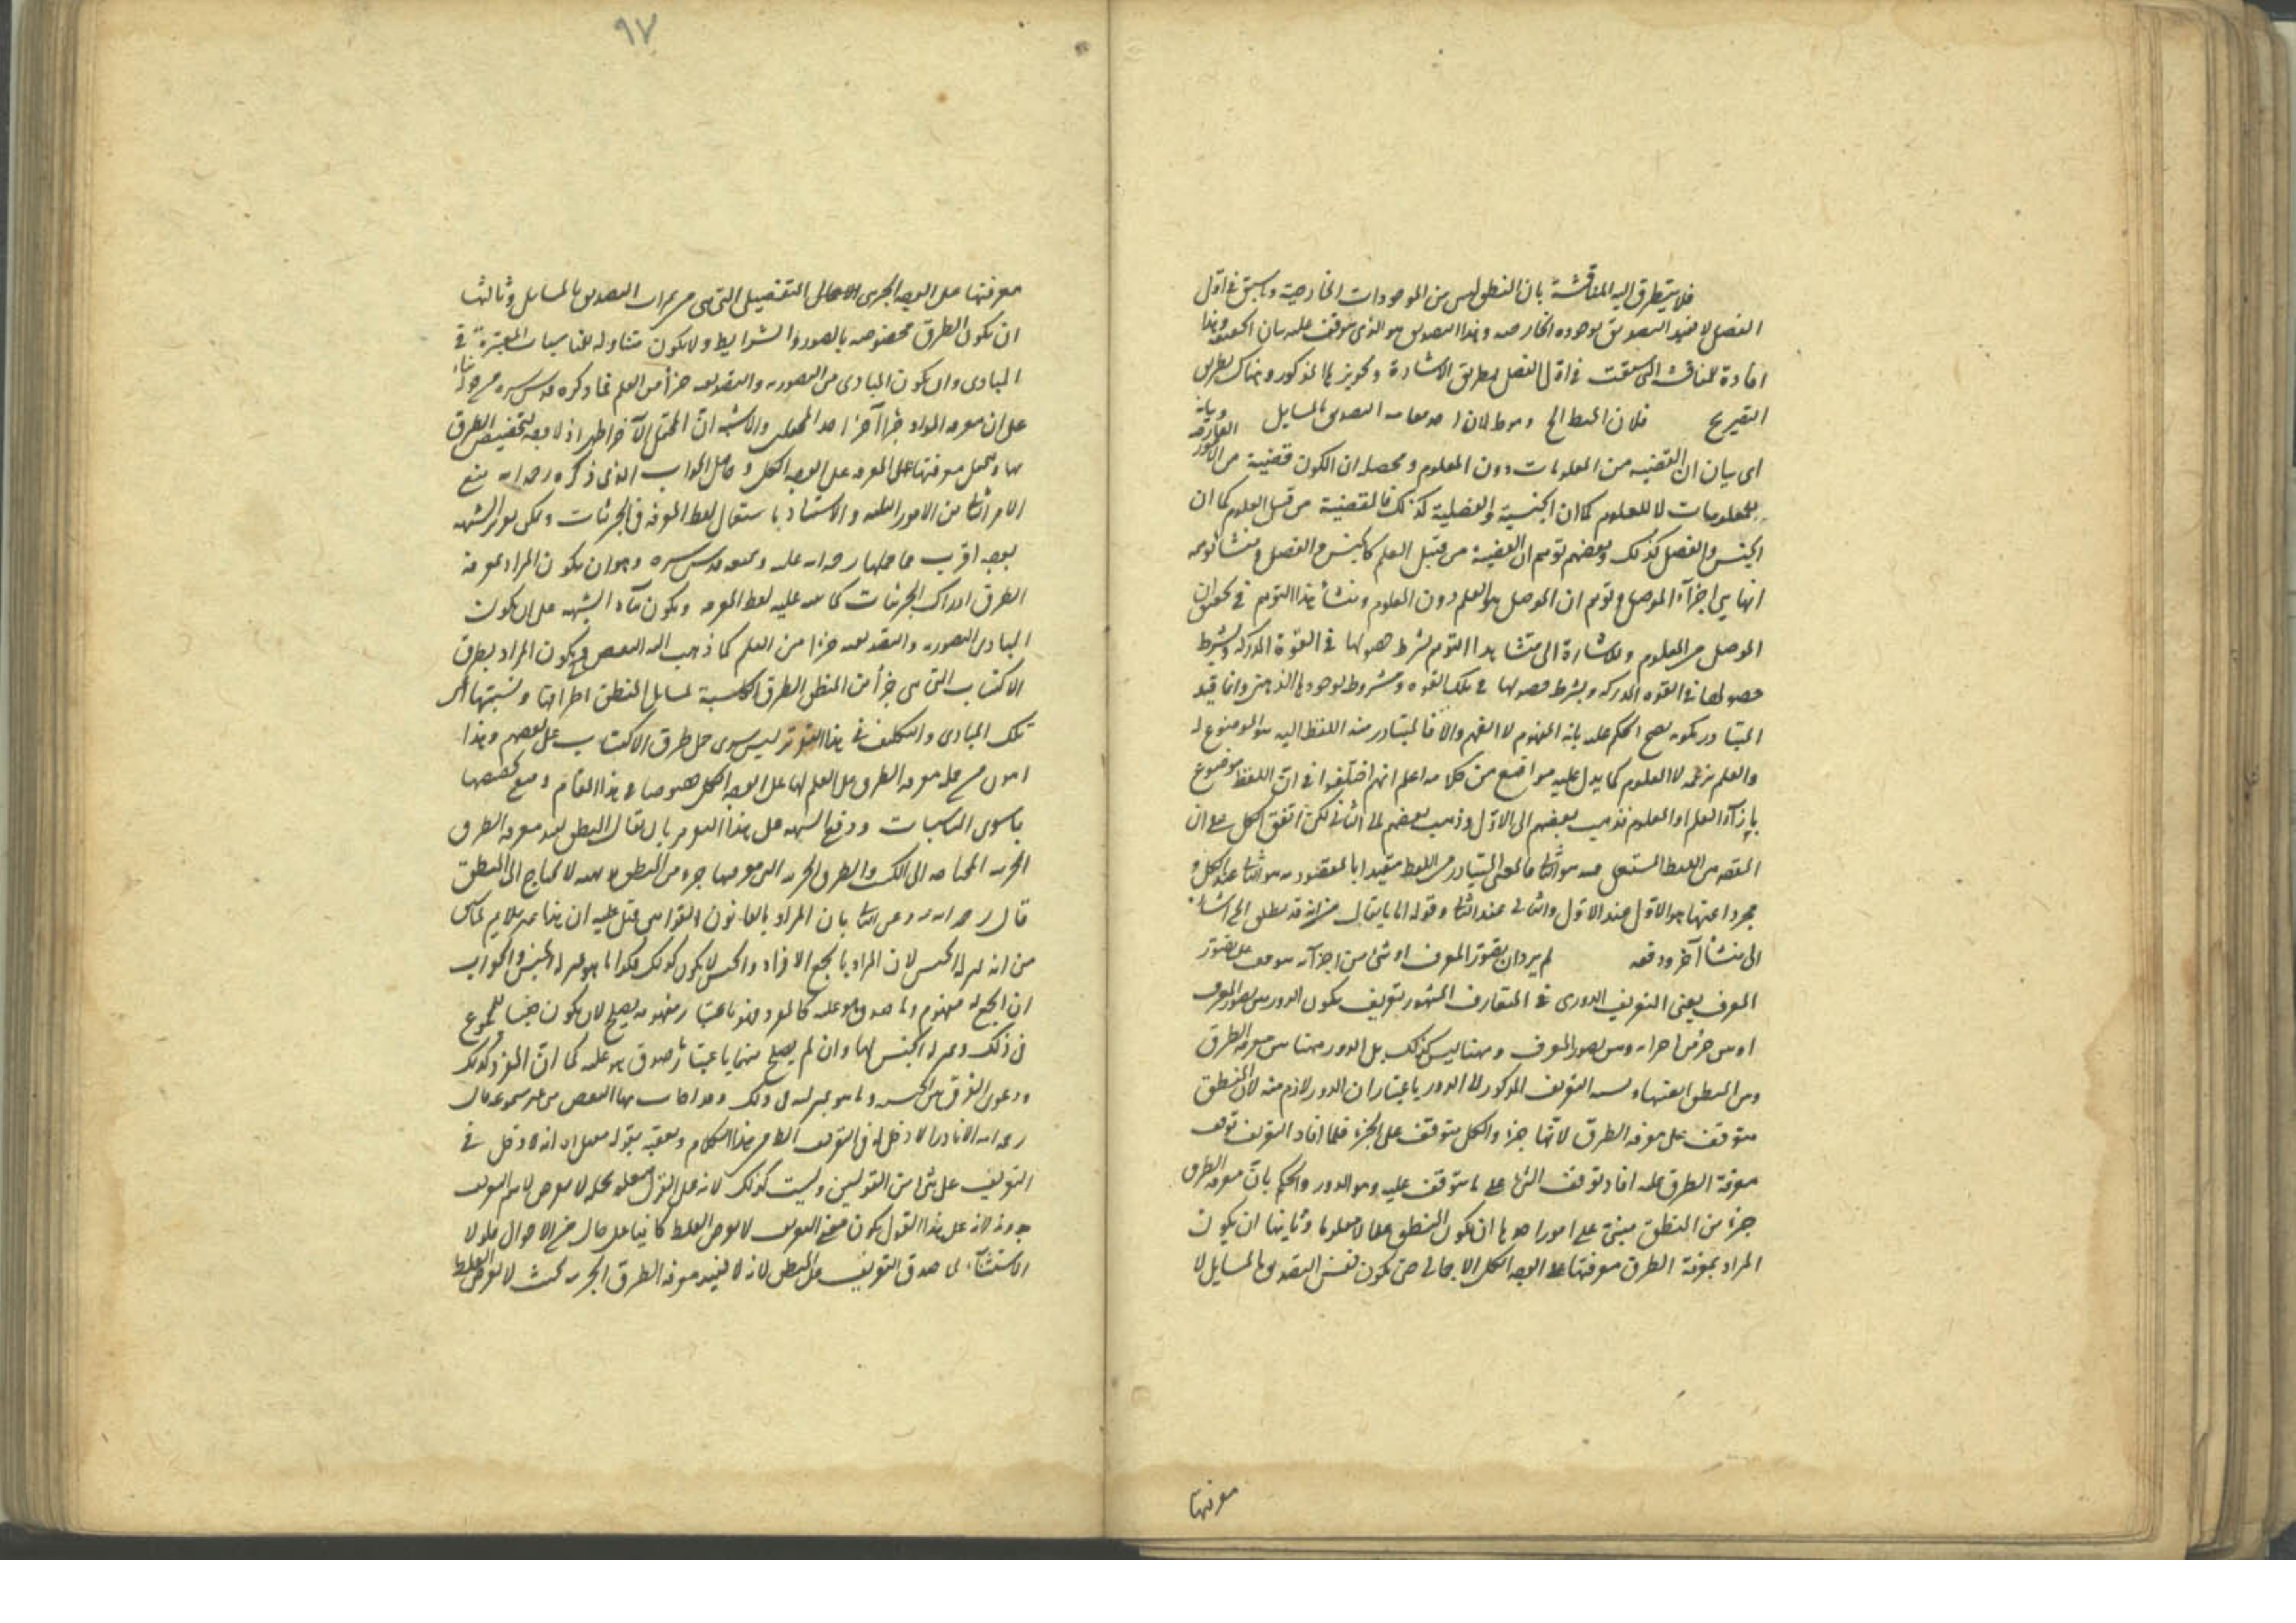 فلا يتطرق اليه المناقشة بان المنطق ليس من الموجودات الخارجية وما سبق في اول
الفصل لا يفيد التصديق بوجوده الخارجي وهذا التصديق هو الذي يتوقف عليه بيان الحقيقة وهذا
المناقشة التي سبقت في اول الفصل بطريق الاشارة وتجويز لما المذكور وهناك بطريق
التصريح فلان التصديق بالمسايل
اى بيان ان القضية من المعلومات دون العلوم ومحصله ان الكون قضية من
للمعلومات لا للعلوم كما ان الجنسية والفصلية كذلك فالقضية من قبيل العلوم كما ان
الجنس والفصل كذلك وبعضهم توهم ان القضية من قبيل العلم كالجنس والفصل ومنشأ توهمه
انها هي اجزآء الموصل وتوهم ان الموصل هو العلم دون المعلوم ومنشأ هذا التوهم في تحقيق ان
الموصل هو المعلوم وللاشارة الى منشأ هذا التوهم بشرط حصولها في القوة المدركة وبشرط
حصولها في القوه المدركه وبشرط حصولها في تلك القوه ومشروط بوجوده في الذهن وانما قيد
المتبادر بكونه يصح الحكم عليه بانه المفهوم لا الفهم والا فالمتبادر منه اللفظ اليه هو الموضوع له
والعلم لا المعلوم كما يدل عليه مواضع من كلامه اعلم انهم اختلفوا في ان اللفظ موضوع
بازآء العلم او المعلوم فذهب بعضهم الى الاول وذهب بعضهم الى الثاني لكن اتفق الكل على ان
المقصد من اللفظ المستعمل فيه هو الثاني فالمعنى المتبادر من اللفظ مقيدا بالمقصودية هو الثاني عند الكل و
مجردا عنها هو الاول عند الاول والثاني عند الثاني وقوله اما ما يقال من انه قد يطلق الخ اشارة
الى منشأ آخر ودفعه لم يرد ان تصور المعرف او شئ من اجزآئه يتوقف على تصور
المعرف يعنى التعريف الدورى في المتعارف المشهور تعريف يكون الدور بين تصور المعرف
او بين جزء من اجزائه وبين تصور المعرف وههنا ليس كذلك بل الدور ههنا بين معرفة الطرق
وبين المنطق نفسها ونسبة التعريف المذكور الى الدور باعتبار ان الدور لازم منه لان المنطق
متوقف على معرفة الطرق لانها جزء والكل متوقف على الجزء فلما افاد التعريف توقف
معرفة الطرق عليه افاد توقف الشئ على ما يتوقف عليه وهو الدور والحكم بان معرفة الطرق
جزء من المنطق مبنى على امور احدها ان يكون المنطق علما لا معلوما وثانيها ان يكون
المراد بمعرفة الطرق معرفتها على الوجه الكلى الاجمالى حتى يكون نفس التصديق بالمسايل لا
معرفتها
٩٧
معرفتها على الوجه الجزئى التفصيلى التى هى من ثمرات التصديق بالمسايل وثالثها
ان يكون الطرق مخصوصه بالصور والشرايط ولا يكون متناوله للمناسبات المعتبرة في
المبادى وان يكون المبادى من التصوريه والتصديقيه جزأ من العلم فما ذكره قدس سره
على ان معرفة المواد جزأ آخر احد المحتملين والاشبه ان المحتمل الآخر اظهر اذ لا وجه لتخصيص الطرق
بها وتحمل معرفتها على المعرفه على الوجه الكلى وحاصل الجواب الذى ذكره رحمه الله منع
الامر الثاني من الامور الثلثه والاستناد باستعمال لفظ المعرفة في الجزئيات ويمكن تقرير الشبهه
بوجه اقرب مما حملها رحمه الله عليه وتبعه قدس سره وهو ان يكون المراد بمعرفة
الطرق ادراك الجزئيات كما يدل عليه لفظ المعرفه ويكون بناء الشبهه على ان يكون
المبادى التصوريه والتصديقيه جزأ من العلم كما ذهب اليه البعض فيكون المراد بطرق
الاكتساب التى هى جزأ من المنطق الطرق الكاسبة لمسايل المنطق اطرافها ونسبتها الى
تلك المبادى والتكلف في هذا التقرير ليس سوى حمل طرق الاكتساب على بعضهم وهذا
اهون من حمل معرفة الطرق على العلم بها على الوجه الكلى خصوصا في هذا المقام ومنع تخصيصها
بما سوى المناسبات ودفع الشبهه على هذا التقرير بان يقال المنطق يفيد معرفة الطرق
الجزئيه المحتاجه الى الكسب والطرق الجزئيه التى معرفتها جزء من المنطق بديهية لا يحتاج الى المنطق
قال رحمه الله بان المراد بالقانون القوانين قيل عليه ان هذا غير ملايم لما سبق
من انه بمنزلة الجنس لان المراد بالجمع الافراد والجنس لا يكون كذلك فكذا ما هو بمنزلة الجنس والجواب
ان الجمع له مفهوم وما صدق هو عليه كالمفرد فهو باعتبار مفهومه يصلح لان يكون جنسا للمجموع
في ذلك وبمنزلة الجنس لها وان لم يصلح منهما باعتبار ما صدق هو عليه كما ان المفرد كذلك
ودعوى الفرق بين الجنس وما هو بمنزلته في ذلك البعض من غير مسموعه قال
رحمه الله الا نادرا لا دخل له في التعريف الظاهر من هذا الكلام وتعقبه بقوله انه لا دخل في
التعريف على شئ من القولين وليست كذلك لانه على القول
بدونه لانه على هذا القول يكون معنى التعريف لا يعرض الغلط كائنا على حال من الاحوال فلولا
الاستثنآء لما صدق التعريف على المنطق لانه لا يفيد معرفة الطرق الجزئيه بحيث لا يعرض الغلط